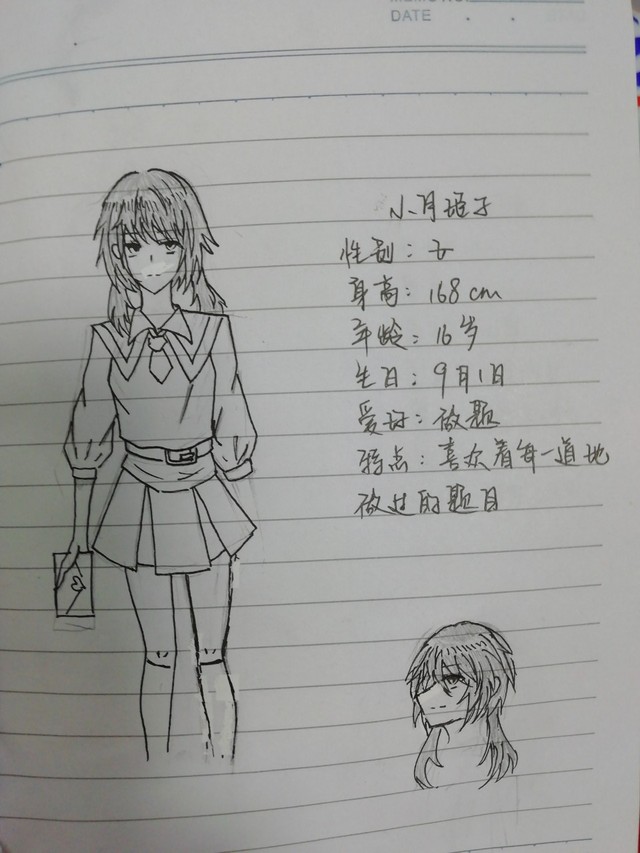 DATE
小月姫子
性别：女
身高：168cm
年龄：16岁
生日：9月1日
爱好：做题
特点：喜欢着每一道她
做过的题目